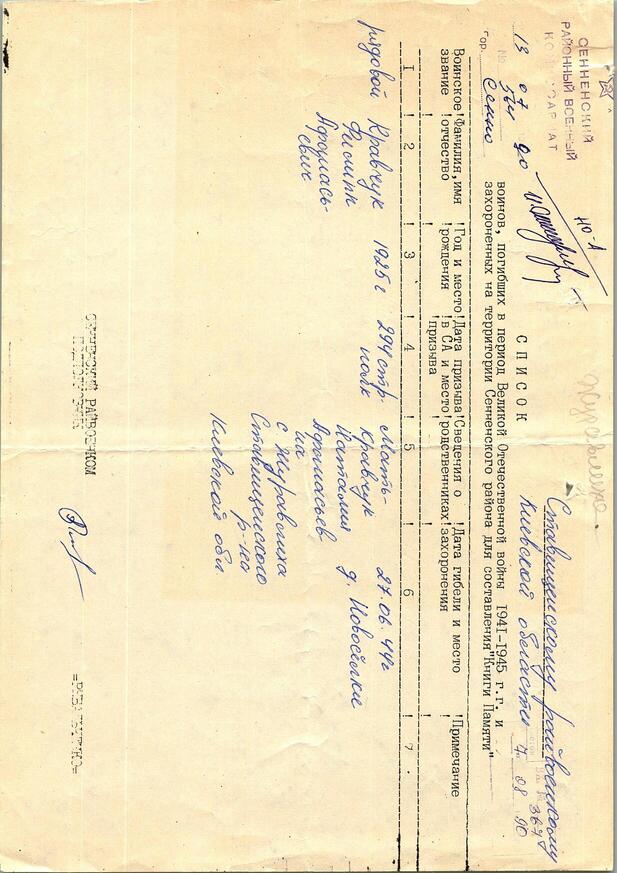 СЕННЕНСКИЙ
РАЙОННЫЙ ВОЕННЫЙ
КОМИССАРИАТ
13 07 90
№ 544
гор. Сенно
но-А
Журавлиха.
Ставищенскому райвоенкому
Киевской области
3674
7 08 90
СПИСОК
воинов, погибших в период Великой Отечественной войны 1941-1945 г.г. и
захороненных на территории Сенненского района для составления "Книги Памяти"
Воинское звание ! Фамилия, имя отчество ! Год и место рождения ! Дата призыва в СА и место призыва ! Сведения о родственниках ! Дата гибели и место захоронения ! Примечание
1 ! 2 ! 3 ! 4 ! 5 ! 6 ! 7
рядовой Кравчук 1925г 294 стр. Мать- 27.06.44г
полк Кравчук д. Новосёлки
Афонась- Наталия
евич Афонасьев
на
с Журавлиха
Ставищенского
р-на
Киевской обл
СЕННЕНСКИЙ РАЙВОЕНКОМ